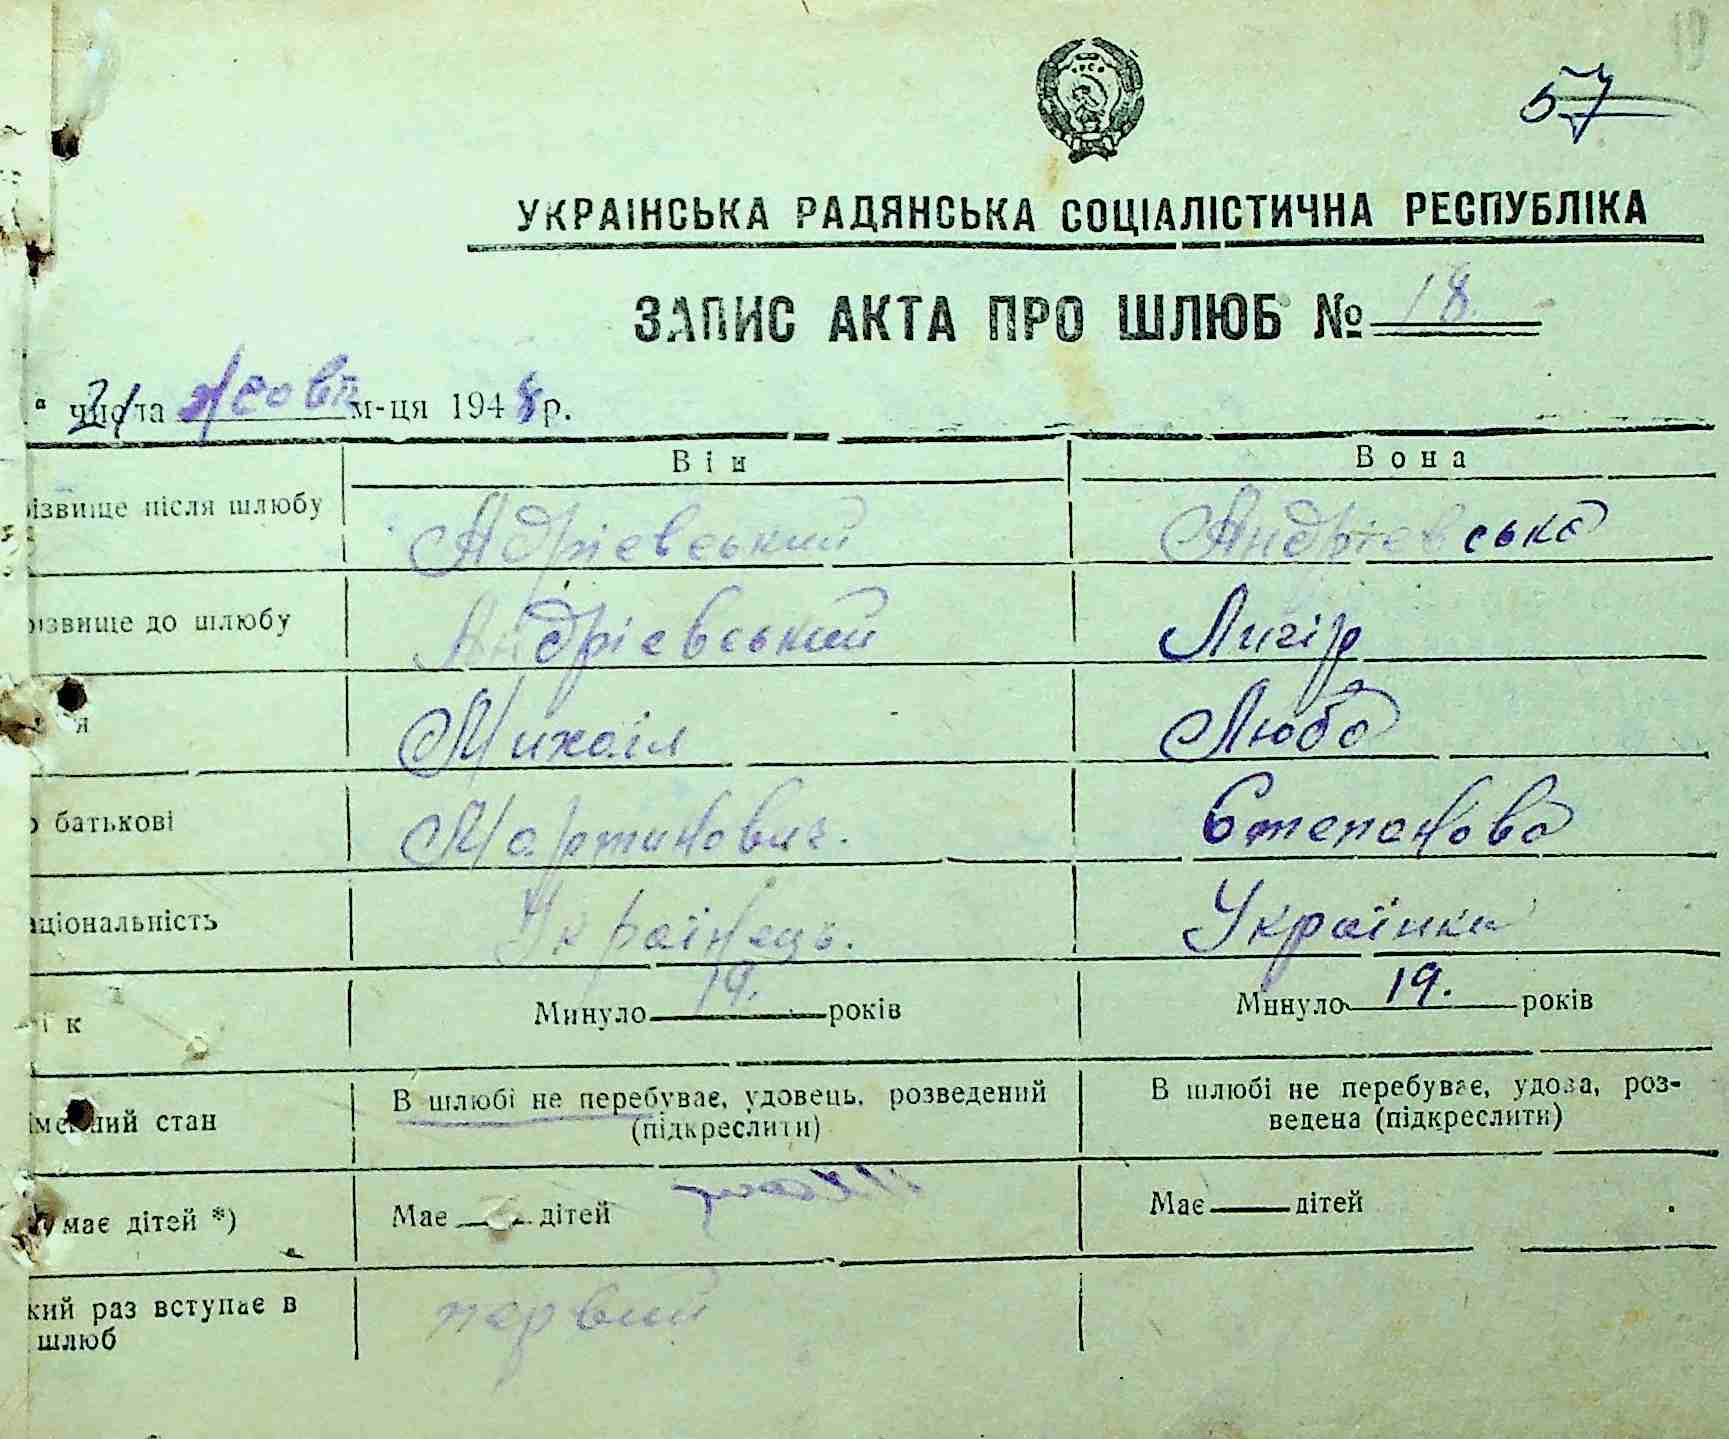 57
УКРАЇНСЬКА РАДЯНСЬКА СОЦІАЛІСТИЧНА РЕСПУБЛІКА
ЗАПИС АКТА ПРО ШЛЮБ № 18.
" 21 числа жовт м-ця 1948 р.
Він Вона
різвище після шлюбу Адрієвський Андрієвська
різвище до шлюбу Андрієвський Лигір
я Михаіл Люба
о батькові Мартинович. Степанова
аціональність Українець. Українка
ік Минуло 19. років Минуло 19. років
імейний стан В шлюбі не перебуває, удовець, розведений В шлюбі не перебуває, удова, роз-
(підкреслити) ведена (підкреслити)
має дітей *) Має — дітей Має — дітей
кий раз вступає в первий
шлюб